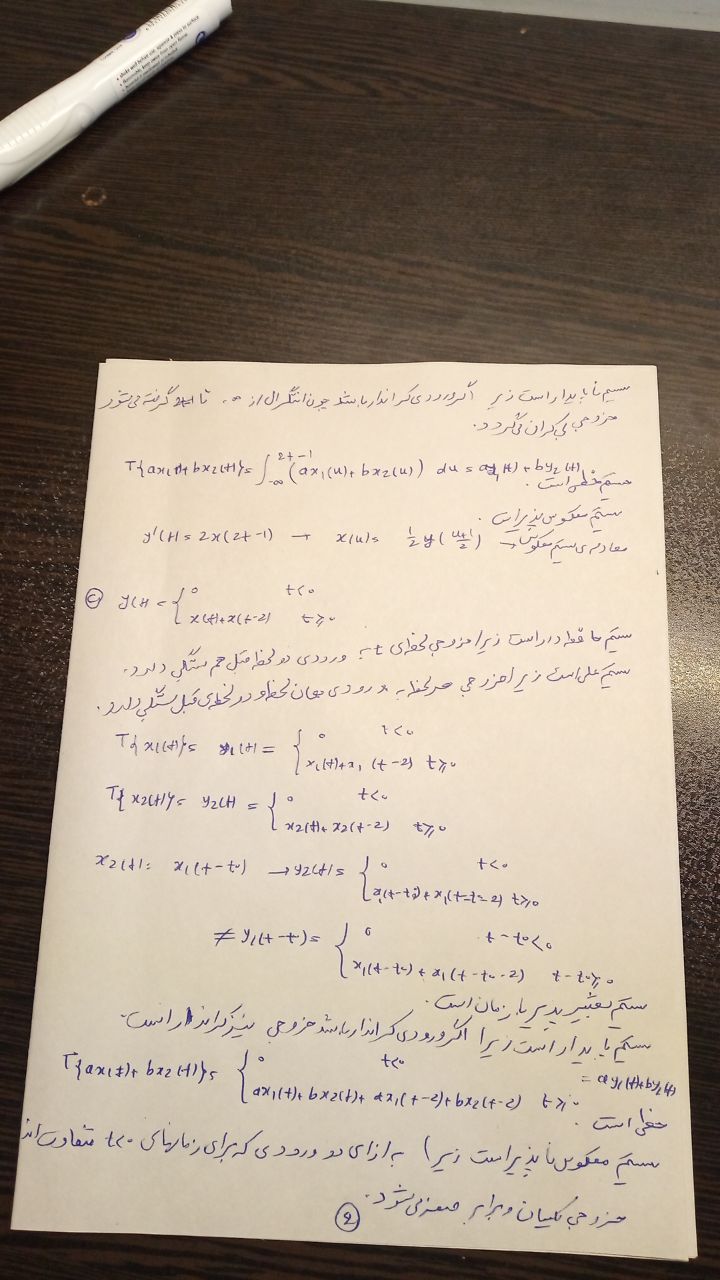 سیستم ناپایدار است زیرا اگر ورودی کراندار باشد چون انتگرال از -∞ تا گرفته می‌شود
خروجی بی کران می‌گردد.
T{ax₁(t)+bx₂(t)} = ∫_{-∞}^{2t-1} (ax₁(u)+bx₂(u)) du = ay₁(t)+by₂(t)
سیستم خطی است.
سیستم معکوس پذیر است.
y'(t) = 2x(2t-1) → x(u) = 1/2 y'((u+1)/2) → معادله‌ی سیستم معکوس
C y(t) = { 0 t<0
x(t)+x(t-2) t≥0
سیستم حافظه دار است زیرا خروجی لحظه‌ی t به ورودی دو لحظه قبل هم بستگی دارد.
سیستم علی است زیرا خروجی هر لحظه به ورودی همان لحظه و دو لحظه‌ی قبل بستگی دارد.
T{x₁(t)} = y₁(t) = { 0 t<0
x₁(t)+x₁(t-2) t≥0
T{x₂(t)} = y₂(t) = { 0 t<0
x₂(t)+x₂(t-2) t≥0
x₂(t) = x₁(t-t₀) → y₂(t) = { 0 t<0
x₁(t-t₀)+x₁(t-t₀-2) t≥0
≠ y₁(t-t₀) = { 0 t-t₀<0
x₁(t-t₀)+x₁(t-t₀-2) t-t₀≥0
سیستم تغییر پذیر با زمان است.
سیستم پایدار است زیرا اگر ورودی کراندار باشد خروجی نیز کراندار است.
T{ax₁(t)+bx₂(t)} = { 0 t<0
ax₁(t)+bx₂(t)+ax₁(t-2)+bx₂(t-2) t≥0 = ay₁(t)+by₂(t)
خطی است.
سیستم معکوس ناپذیر است زیرا به ازای دو ورودی که برای زمانهای t<0 متفاوت اند
خروجی یکسان و برابر صفر می‌شود.
2